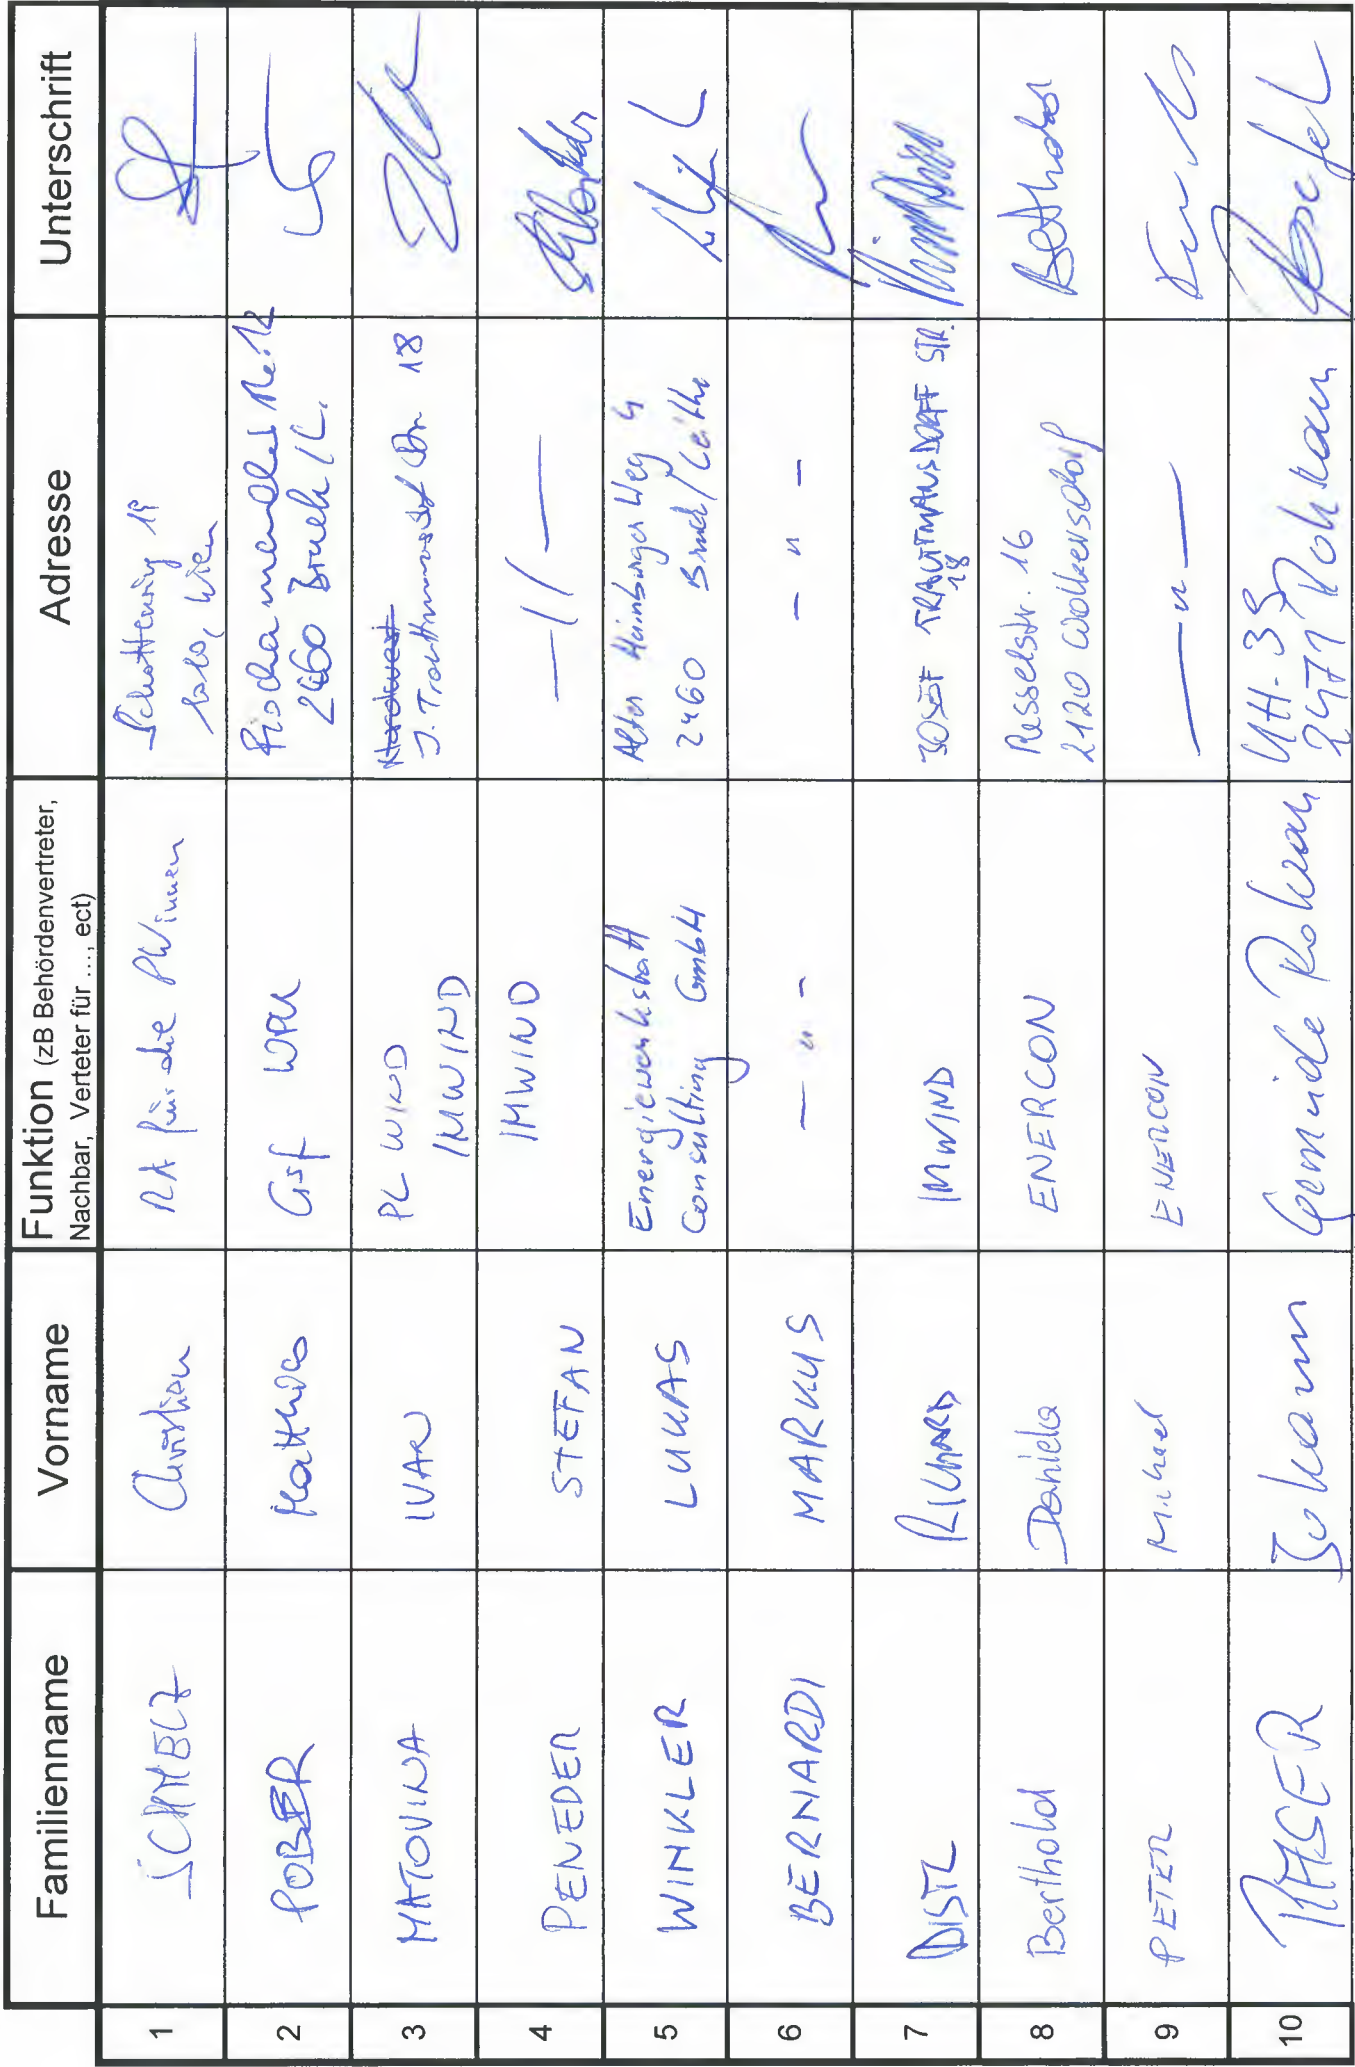 Familienname Vorname Funktion (zB Behördenvertreter, Adresse Unterschrift
Nachbar, Verteter für ..., ect)
1 SCHMELZ Christian RA für die PWinnen Schottenring 19
1010 Wien
2 POBER Matthias Gsf WPU
2460 Bruck/L.
3 MATOVINA IVAN PL WIND
IMWIND J. Trauttmansdorf Str 18
4 PENEDER STEFAN IMWIND —//—
5 WINKLER LUKAS Energiewerkstatt Alter Hainburger Weg 4
Consulting GmbH 2460 Bruck/Leitha
6 BERNARDI MARKUS — " - - " -
7 DISTL RICHARD IMWIND JOSEF TRAUTTMANSDORFF STR.
18
8 Berthold Daniela ENERCON Resselstr. 16 Berthold
2120 Wolkersdorf
9 PETER Michael ENERCON — " —
10 RASER Johann Gemeinde Rohrau UH-35
2471 Rohrau